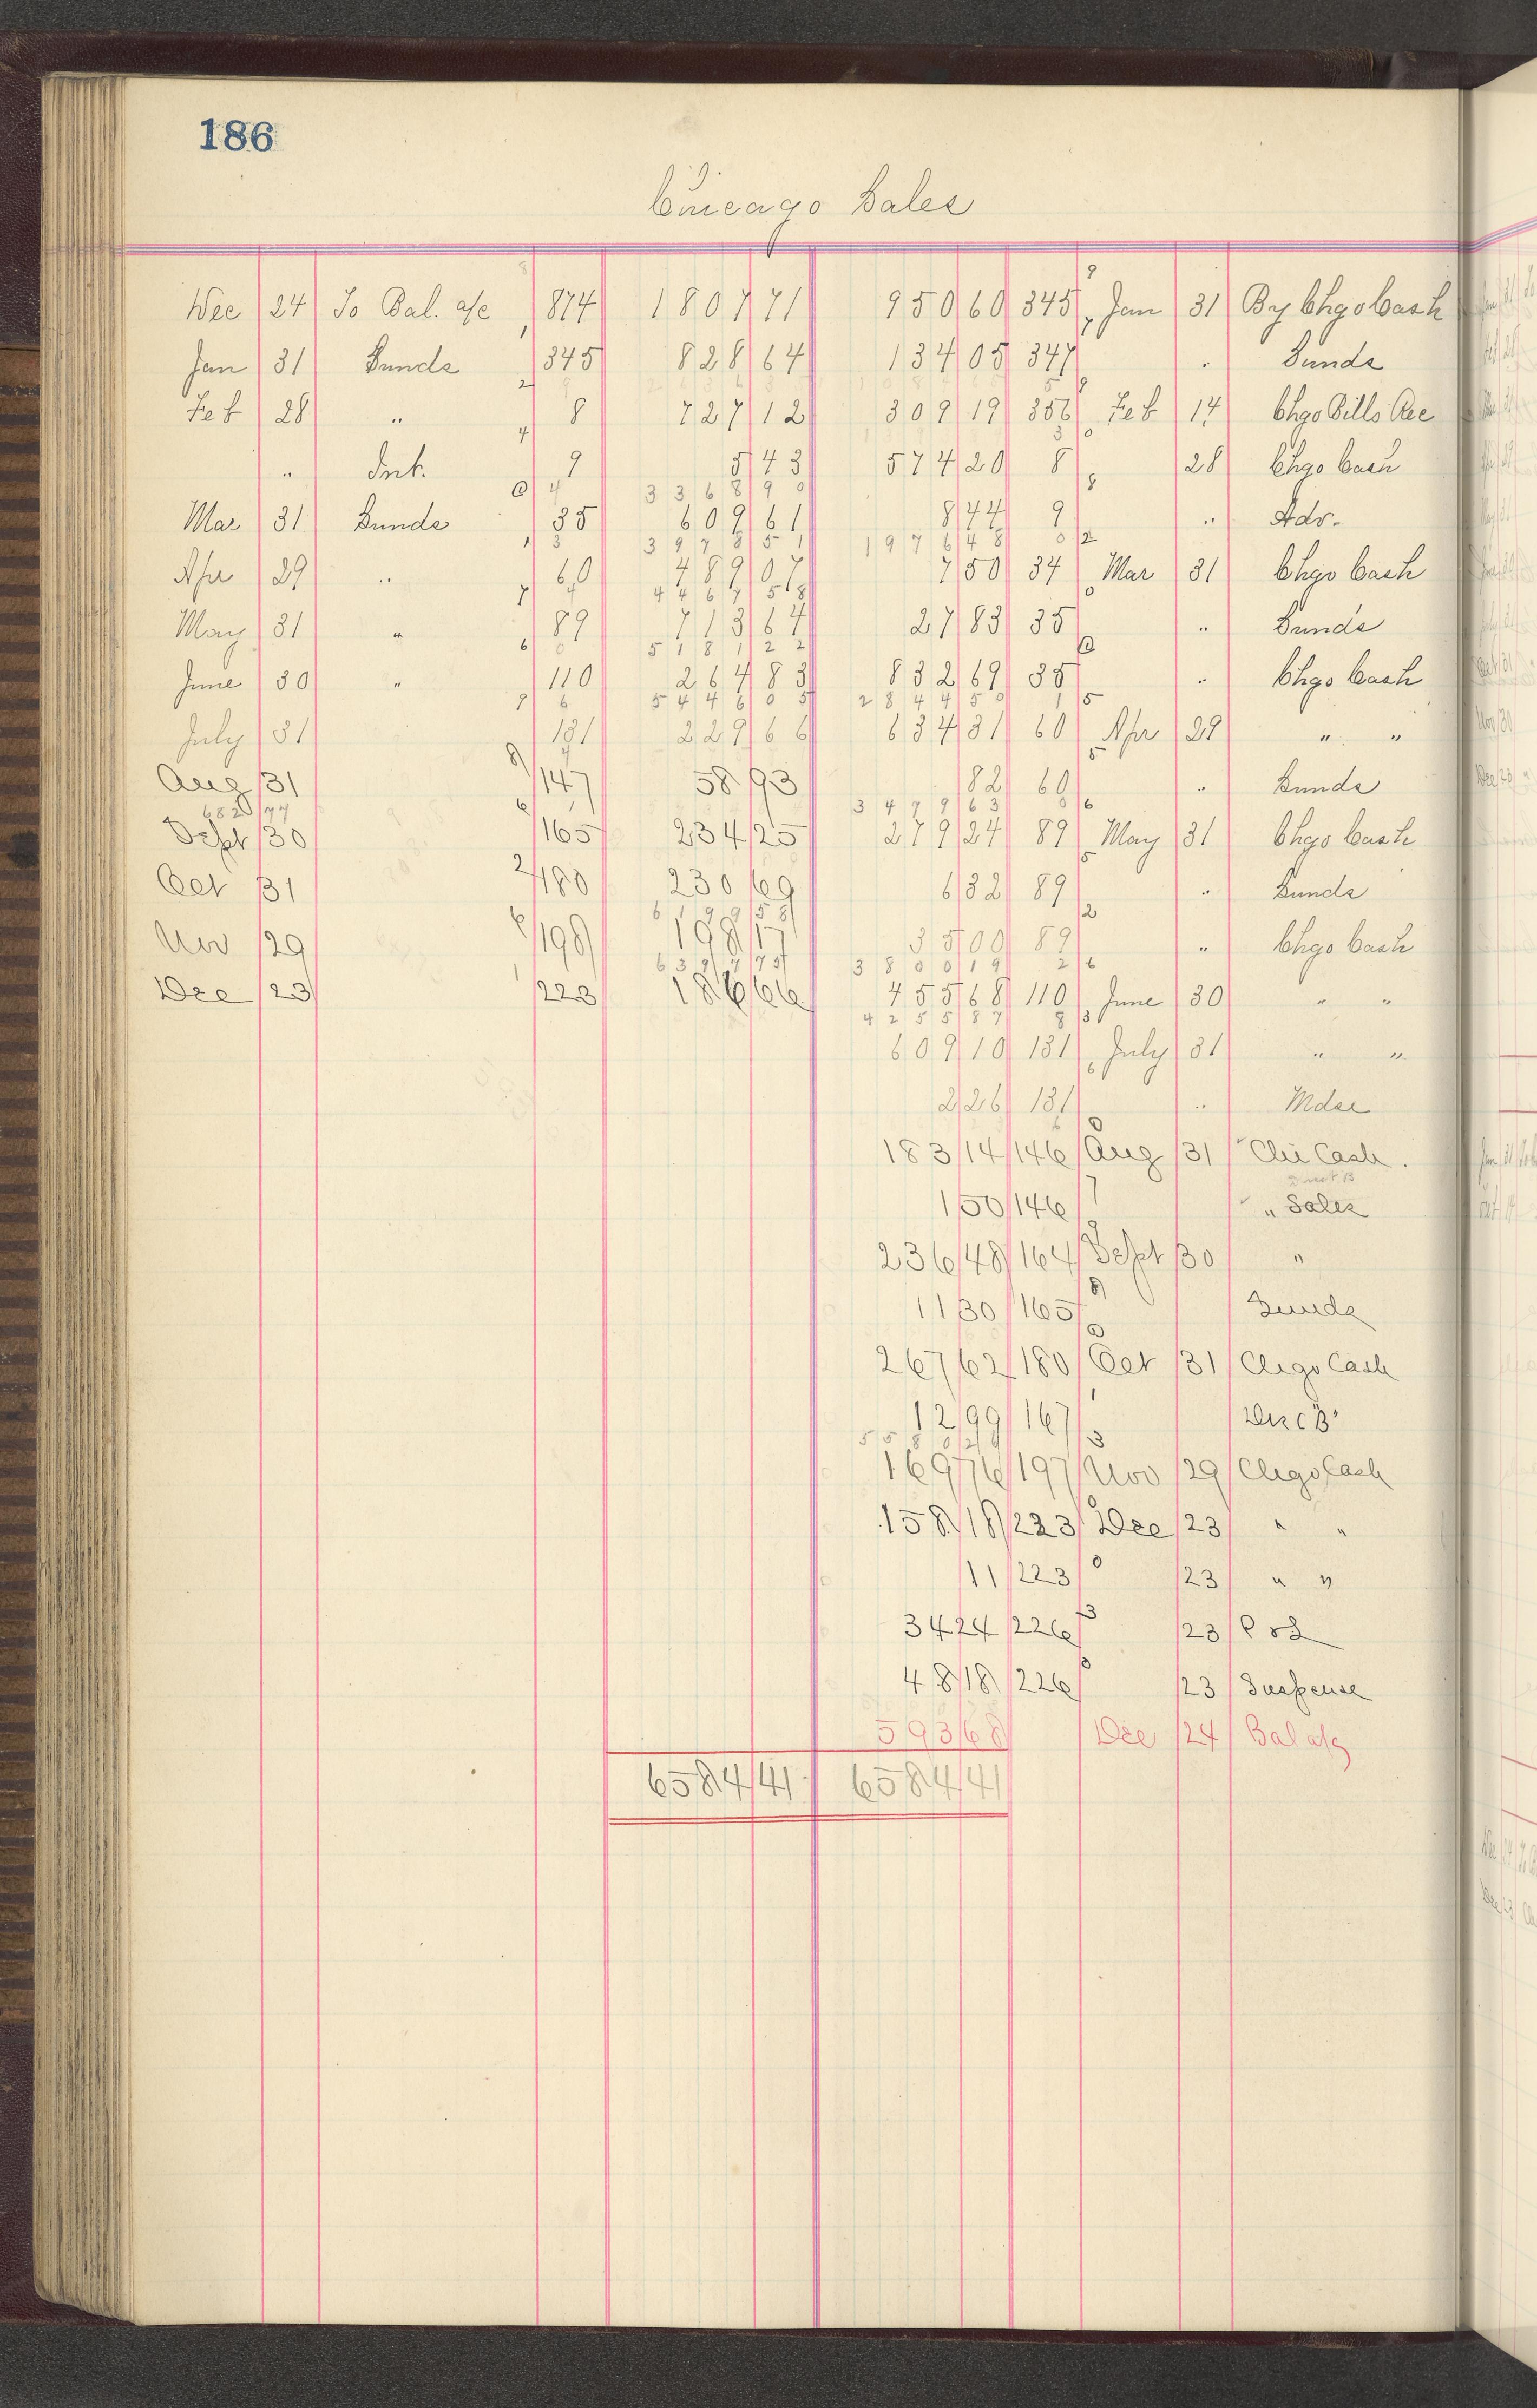 186
Chicago Sales
Dec 24 To Bal. a/c 874 1807 71 950 60 345 Jan 31 By Chgo Cash
Jan 31 Sunds 345 828 64 134 05 347 " Sunds
Feb 28 " 8 727 12 309 19 356 Feb 14 Chgo Bills Rec
" Int. 9 5 43 574 20 8 28 Chgo Cash
3368 90
Mar 31 Sunds 35 609 61 8 44 9 " Adv.
3978 51 1976 48
Apr 29 " 60 489 07 7 50 34 Mar 31 Chgo Cash
4467 58
May 31 " 89 713 64 27 83 35 " Sunds
5181 22
June 30 " 110 264 83 832 69 35 " Chgo Cash
5446 05 2844 50
July 31 131 229 66 634 31 60 Apr 29 " "
Aug 31 147 58 93 82 60 " Sunds
3479 63
Sept 30 165 234 25 279 24 89 May 31 Chgo Cash
Oct 31 180 230 69 6 32 89 " Sunds
6199 58
Nov 29 198 198 17 35 00 89 " Chgo Cash
6397 75 3800 19
Dec 23 223 186 66 455 68 110 June 30 " "
4255 87
609 10 131 July 31 " "
2 26 131 " Mdse
183 14 146 Aug 31 Chi Cash.
1 50 146 " Sales
236 48 164 Sept 30 "
11 30 165 Sunds
267 62 180 Oct 31 Chgo Cash
12 99 167 Disc "B"
5580 26
169 76 197 Nov 29 Chgo Cash
158 18 223 Dec 23 " "
11 223 23 " "
34 24 226 23 P & L
48 18 226 23 Suspense
593 68 Dec 24 Bal a/c
6584 41 6584 41